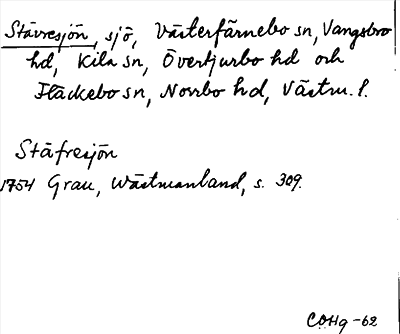 Stävresjön, sjö, Västerfärnebo sn, Vangsbro
hd, Kila sn, Övertjurbo hd och
Fläckebo sn, Norrbo hd, Västm. l.
Stäfresjön
1754 Grau, Wästmanland, s. 309.
COHg-62